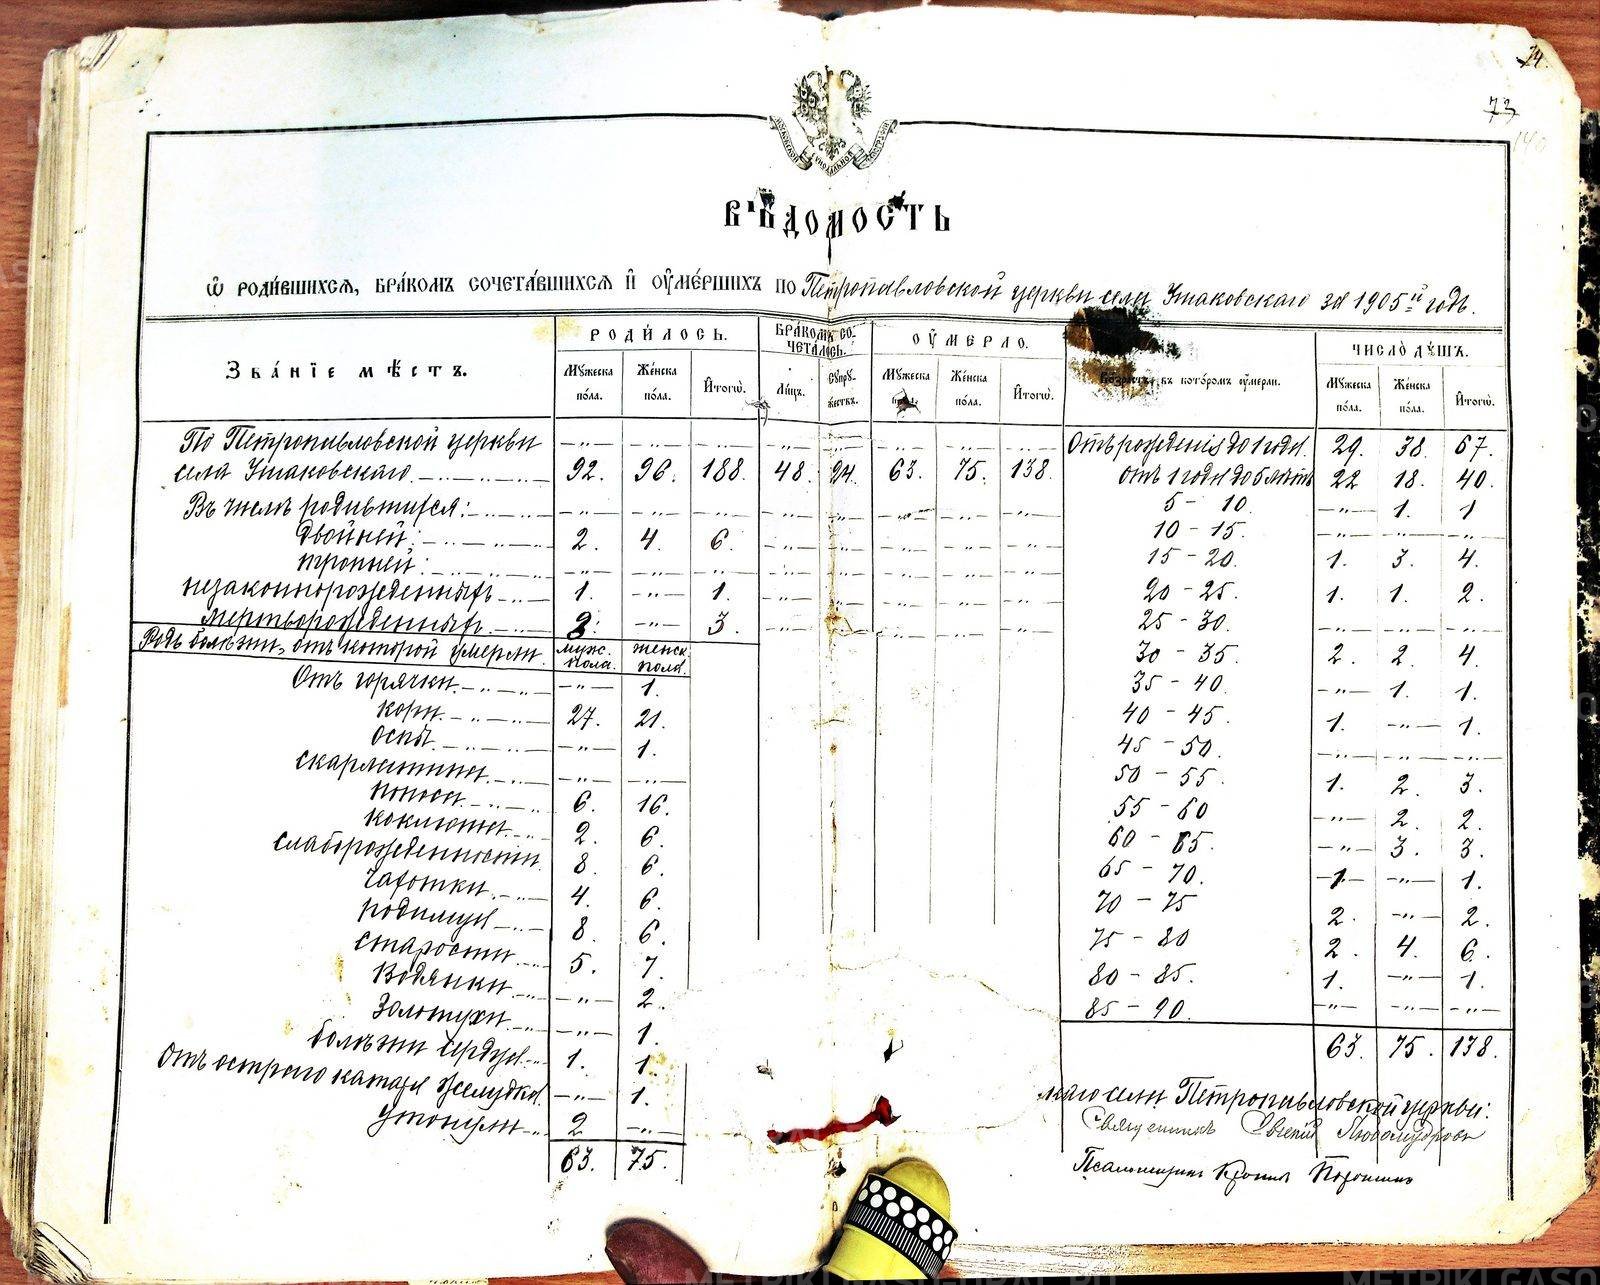 74.
73
140
ВѢДОМОСТЬ
Ѡ РОДИ́ВШИХСЯ, БРА́КОМЪ СОЧЕТА́ВШИХСЯ И҆ ОУ҆МЕ́РШИХЪ ПО Петропавловской церкви села Ушаковскаго за 1905й годъ.
ЗВА́НІЕ МѢ́СТЪ. РОДИ́ЛОСЬ. БРА́КОМЪ СО-ЧЕТА́ЛОСЬ. ОУ҆́МЕРЛО. Во́зрастъ, въ кото́ромъ оу҆́мерли. ЧИСЛО̀ ДУ́ШЪ.
Му́жеска по́ла. Же́нска по́ла. И҆тогѡ̀. Ли́цъ. Супру́-жествъ. Му́жеска Же́нска по́ла. И҆тогѡ̀. Му́жеска по́ла. Же́нска по́ла. И҆тогѡ̀.
По Петропавловской церкви -"- -"- -"- -"- -"- -"- -"- -"- Отъ рожденія до 1 года. 29. 38. 67.
села Ушаковскаго 92. 96. 188. 48. 24. 63. 75. 138. отъ 1 года до 5 лѣтъ 22 18. 40.
Въ числѣ родившихся: -"- -"- -"- -"- -"- -"- -"- -"- 5 - 10. -"- 1. 1
двойней: 2. 4. 6. -"- -"- -"- -"- -"- 10 - 15. -"- -"- -"-
тройней: -"- -"- -"- -"- -"- -"- -"- -"- 15 - 20. 1. 3. 4.
незаконнорожденныхъ 1. -"- 1. -"- -"- -"- -"- -"- 20 - 25. 1. 1. 2.
мертворожденныхъ -"- 3. -"- -"- -"- -"- -"- 25 - 30.
Родъ болѣзни, отъ которой умерли. муж. пола. женск. пола. 30 - 35. 2. 2. 4.
Отъ горячки. -"- 1. 35 - 40. -"- 1. 1.
кори. 27. 21. 40 - 45. 1. -"- 1.
оспы. -"- 1. 45 - 50. -"- -"- -"-
скарлатины -"- -"- 50 - 55. 1. 2. 3.
поноса. 6. 16. 55 - 60 -"- 2. 2.
коклюша. 2. 6. 60 - 65. -"- 3. 3.
слаборожденности 8. 6. 65 - 70. 1. -"- 1.
чахотки. 4. 6. 70 - 75 2. -"- 2.
родимца 8. 6. 75 - 80 2. 4. 6.
старости 5. 7. 80 - 85. 1. -"- 1.
Водянки -"- 2. 85 - 90. -"- -"- -"-
Золотухи -"- 1. 63. 75. 138.
болѣзни сердца 1. 1.
Отъ остраго катара желудка. -"- 1.
утонули 2 -"-
63. 75.
села Петропавловской церкви:
Священникъ Евгеній Любомудровъ
Псаломщикъ